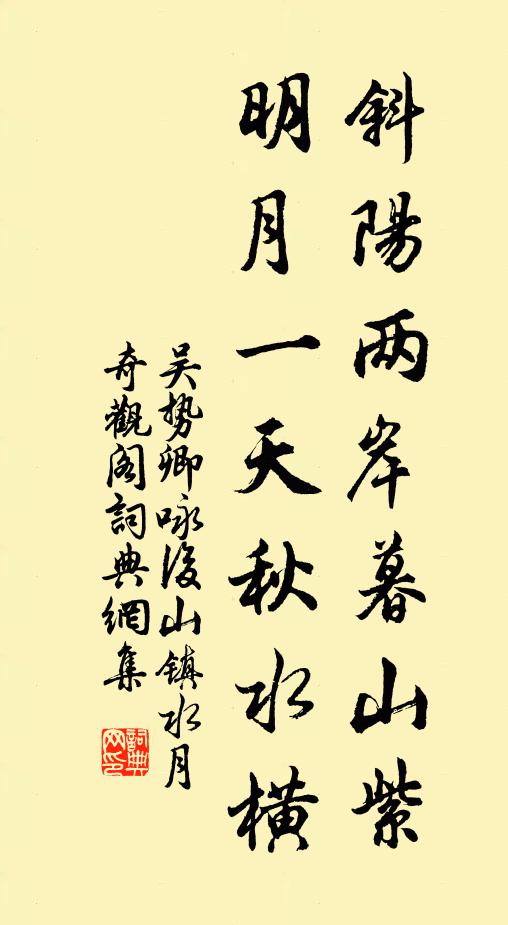 斜陽两岸暮山紫
明月一天秋水橫
吴势卿咏後山鎮水月
奇觀阁詞典網集
詞典
网印